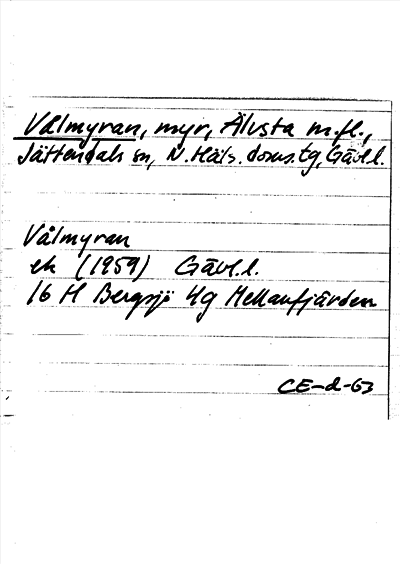 Välmyran, myr, Älvsta m.fl.,
Jättendals sn, N. Häls. doms. tg, Gävl.l.
Vålmyran
ek (1959) Gävl.l.
16 H Bergsjö 4g Mellanfjärden
CE-d-63